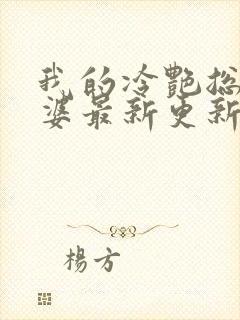 我的冷艷总
婆最新更新
楊方